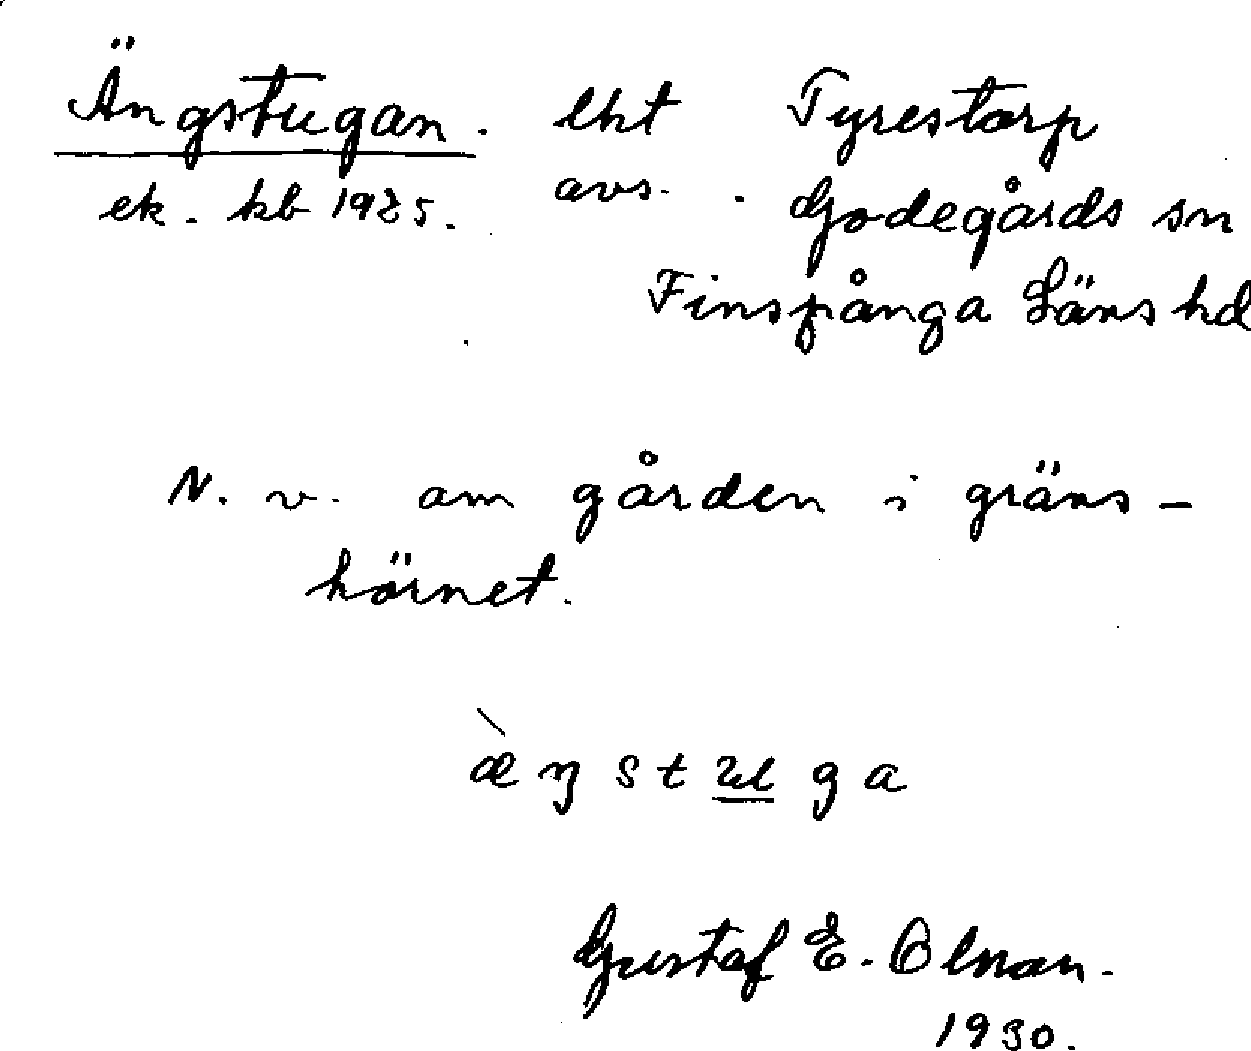 Ängstugan. lht Tyrestorp
ek. kb 1925. avs. Godegårds sn
Finspånga Läns hd
N. v. om gården i gräns-
hörnet.
æ̀ŋstuga
Gustaf E.
1930.